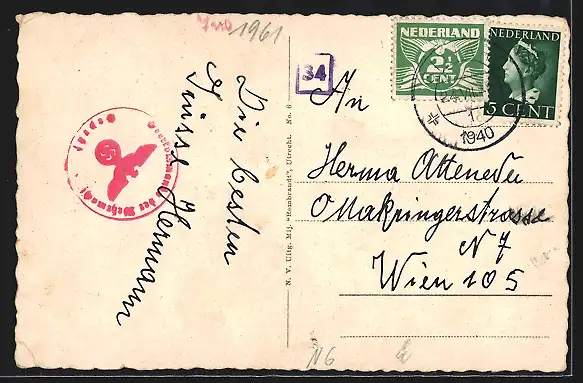 1961
Die besten
Grüsse Hermann
Geprüft
Oberkommando der Wehrmacht
34
N. V. Uitg. Mij. "Rembrandt", Utrecht. No. 6
NEDERLAND
2½
CENT
NEDERLAND
5 CENT
1940
An
Herma Atteneder
Ottakringerstrasse
N 7
Wien 105
N6